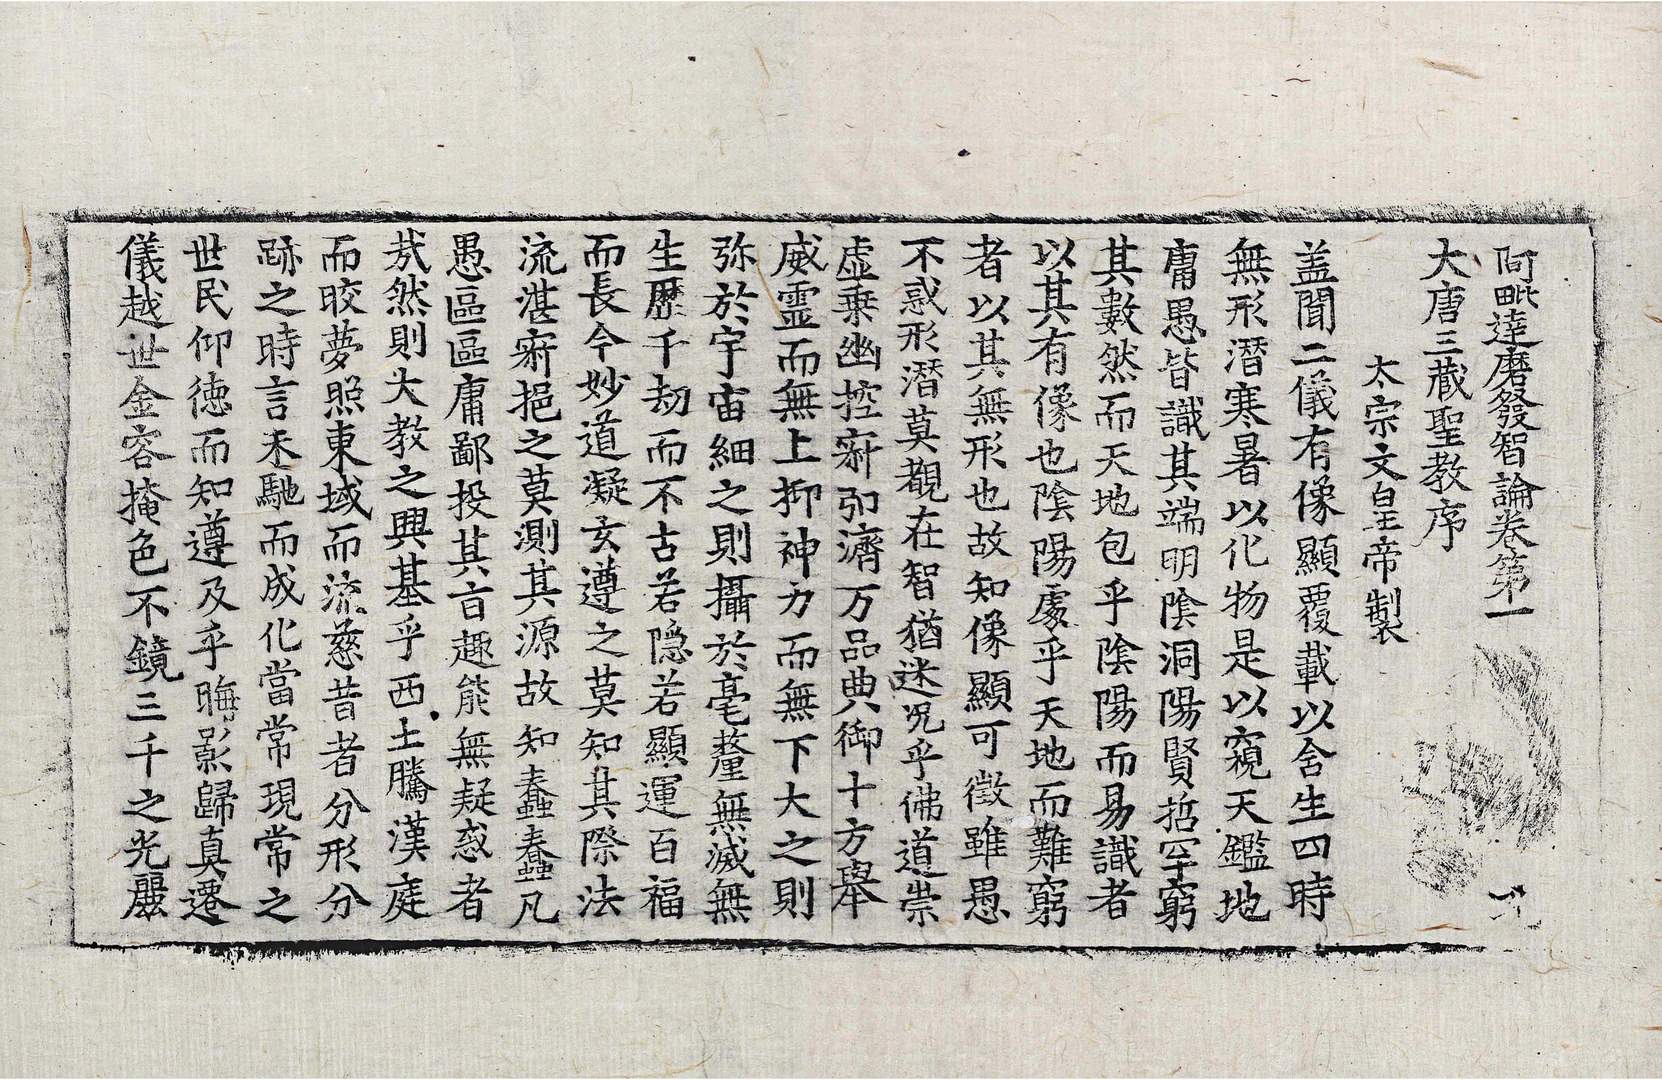 阿毗達磨發智論卷第一
大唐三藏聖教序
太宗文皇帝製
盖聞二儀有像顯覆載以含生四時
無形潛寒暑以化物是以窺天鑑地
庸愚皆識其端明陰洞陽賢哲罕窮
其數然而天地包乎陰陽而易識者
以其有像也陰陽處乎天地而難窮
者以其無形也故知像顯可徵雖愚
不惑形潛莫覩在智猶迷況乎佛道崇
虛乗幽控寂弘濟万品典御十方舉
威靈而無上抑神力而無下大之則
弥於宇宙細之則攝於毫𨤲無滅無
生歷千劫而不古若隱若顯運百福
而長今妙道凝玄遵之莫知其際法
流湛寂挹之莫測其源故知蠢蠢凡
愚區區庸鄙投其旨趣能無疑惑者
㦲然則大教之興基乎西土騰漢庭
而晈夢照東域而流慈昔者分形分
跡之時言未馳而成化當常現常之
世民仰德而知遵及乎晦影歸真遷
儀越世金容掩色不鏡三千之光麗